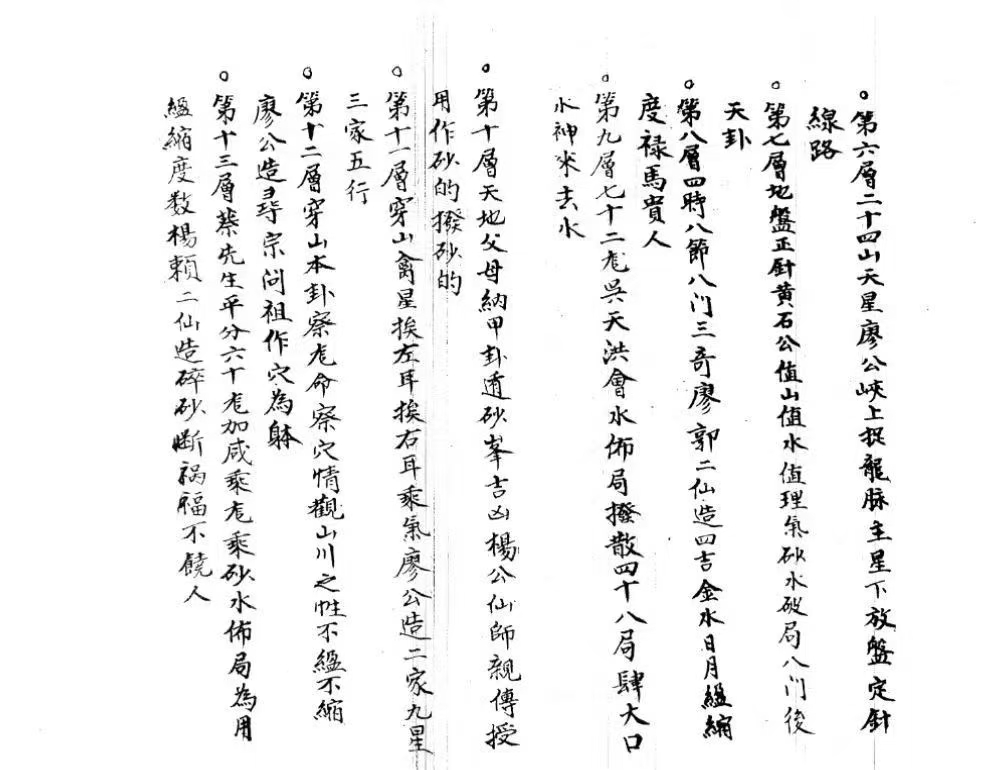 。第六層二十四山天星廖公峽上捉龍脉主星下放盤定針
線路
。第七層地盤正針黃石公值山值水值理氣砂水破局八门後
天卦
。第八層四時八節八门三奇廖郭二仙造四吉金水日月縕縮
度禄馬貴人
。第九層七十二尨吳天洪會水佈局撥散四十八局肆大口
水神来去水
。第十層天地父母納甲卦遁砂峯吉凶楊公仙師親傳授
用作砂的撥砂的
。第十一層穿山禽星挨左耳挨右耳乘氣廖公造二家九星
三家五行
。第十二層穿山本卦察尨命察穴情觀山川之性不縕不縮
廖公造尋宗问祖作穴為躰
。第十三層蔡先生平分六十尨加咸乘尨乘砂水佈局為用
縕縮度数楊賴二仙造碎砂断祸福不饒人